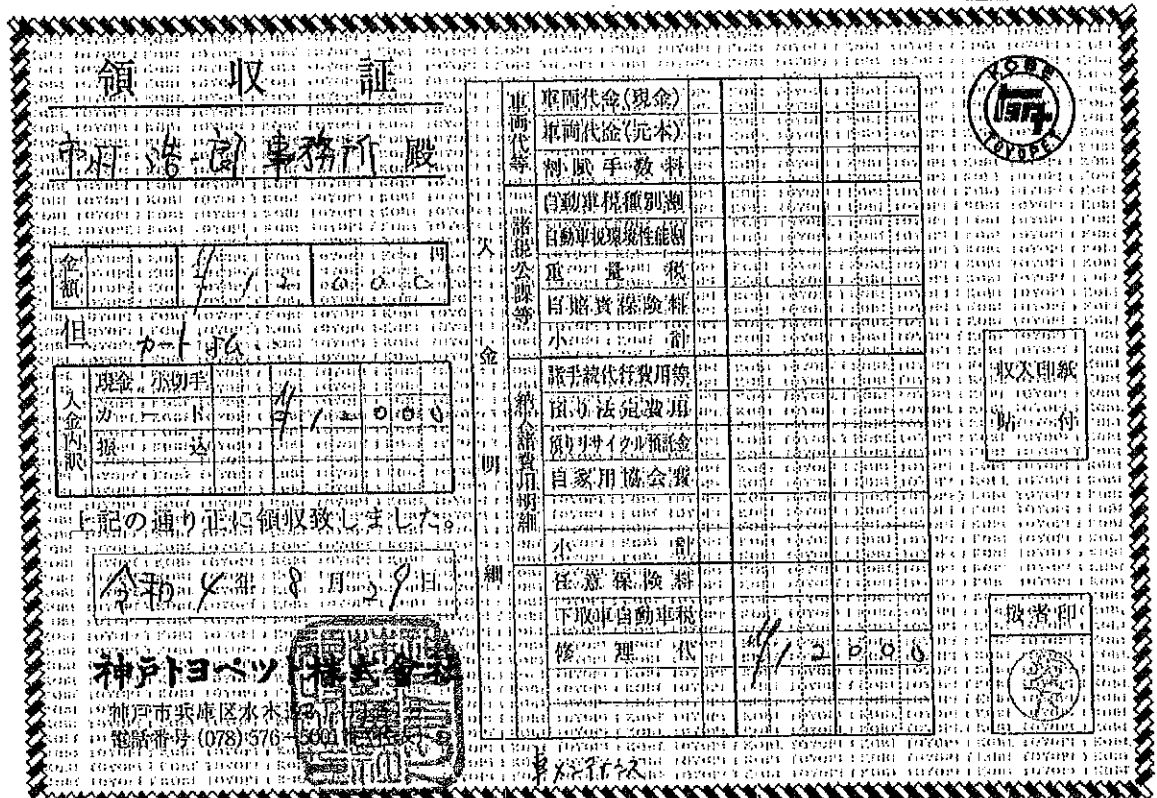 領 収 証
事務所 殿
金額 ¥12000 円
但 カード
入金内訳
現金、小切手
カード ¥12000
振込
上記の通り正に領収致しました。
令和 4年 8月 29日
神戸トヨペット株式会社
神戸市兵庫区水木
電話番号 (078) 576-5001
入金明細
車両代等
車両代金(現金)
車両代金(元本)
割賦手数料
諸税公課等
自動車税種別割
自動車税環境性能割
重量税
自賠責保険料
小計
諸手続代行費用等
預り法定費用
預りリサイクル預託金
自家用協会費
小計
任意保険料
下取車自動車税
修理代 ¥12000
車メンテナンス
KOBE
TOYOPET
収入印紙
貼付
扱者印